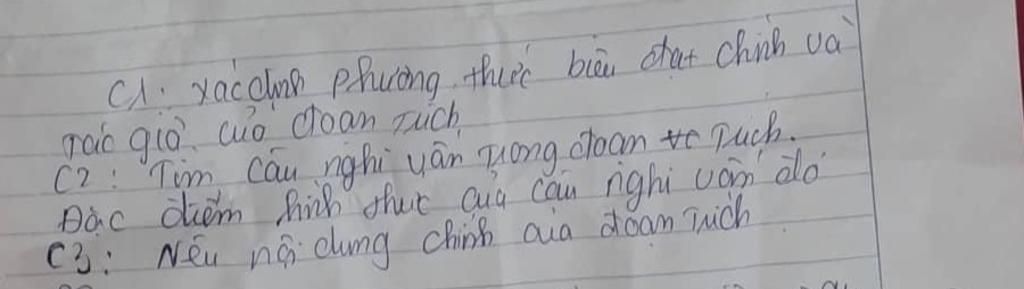 C1: xác định phương thức biểu đạt chính và
tác giả của đoạn trích
C2: Tìm câu nghi vấn trong đoạn trích.
Đặc điểm hình thức của câu nghi vấn đó
C3: Nêu nội dung chính của đoạn trích